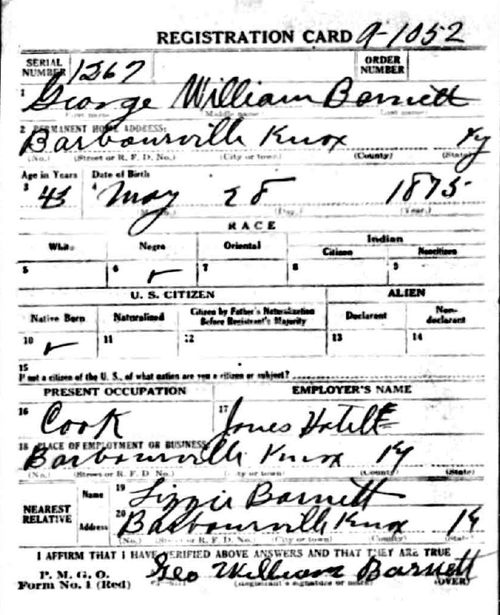 REGISTRATION CARD 9-1052
SERIAL NUMBER 1267 ORDER NUMBER
1 George William Barnett
First name Middle name Last name
2 PERMANENT HOME ADDRESS:
Barbourville Knox Ky
(No.) (Street or R. F. D. No.) (City or town) (County) (State)
Age in Years Date of Birth
3 43 4 May 28 1875
(Month.) (Day.) (Year.)
RACE
White Negro Oriental Indian
Citizen Noncitizen
5 6 ✓ 7 8 9
U. S. CITIZEN ALIEN
Native Born Naturalized Citizen by Father's Naturalization Before Registrant's Majority Declarant Non-declarant
10 ✓ 11 12 13 14
15
If not a citizen of the U. S., of what nation are you a citizen or subject?
PRESENT OCCUPATION EMPLOYER'S NAME
16 Cook 17 Jones Hotell
18 PLACE OF EMPLOYMENT OR BUSINESS:
Barbourville Knox Ky
(No.) (Street or R. F. D. No.) (City or town) (County) (State)
NEAREST RELATIVE
Name 19 Lizzie Barnett
Address 20 Barbourville Knox Ky
(No.) (Street or R. F. D. No.) (City or town) (County) (State)
I AFFIRM THAT I HAVE VERIFIED ABOVE ANSWERS AND THAT THEY ARE TRUE
P. M. G. O.
Form No. 1 (Red) Geo William Barnett
(Registrant's signature or mark) (OVER)